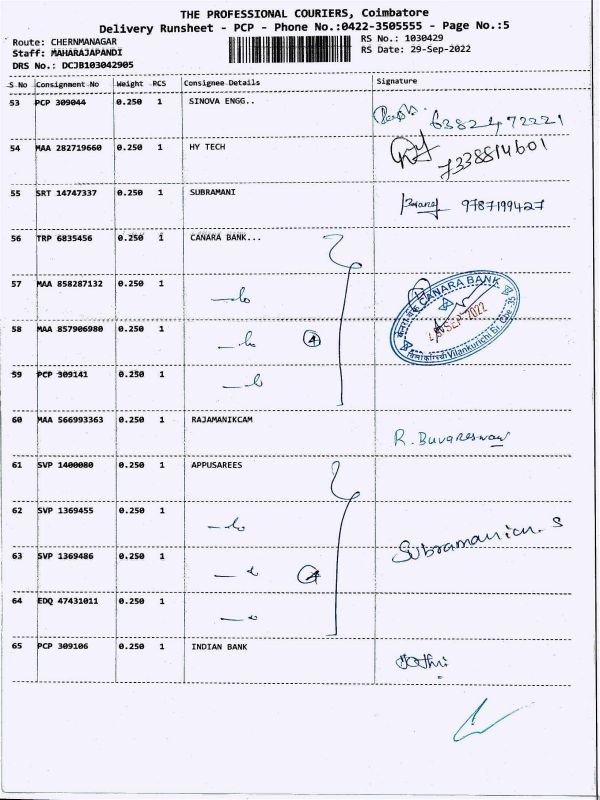 THE PROFESSIONAL COURIERS, Coimbatore
Delivery Runsheet - PCP - Phone No.:0422-3505555 - Page No.:5
Route: CHERNMANAGAR RS No.: 1030429
Staff: MAHARAJAPANDI RS Date: 29-Sep-2022
DRS No.: DCJB103042905
S No Consignment No Weight RCS Consignee Details Signature
53 PCP 309044 0.250 1 SINOVA ENGG.. 6382472221
54 MAA 282719660 0.250 1 HY TECH 7338814601
55 SRT 14747337 0.250 1 SUBRAMANI 9787199427
56 TRP 6835456 0.250 1 CANARA BANK...
57 MAA 858287132 0.250 1
CANARA BANK
SEP 2022
Vilankurichi Br. Cbe-35
58 MAA 857906980 0.250 1 4
59 PCP 309141 0.250 1
60 MAA 566993363 0.250 1 RAJAMANIKCAM R. Buvaneswari
61 SVP 1400080 0.250 1 APPUSAREES
62 SVP 1369455 0.250 1
Subramanian. S
63 SVP 1369486 0.250 1 4
64 EDQ 47431011 0.250 1
65 PCP 309106 0.250 1 INDIAN BANK